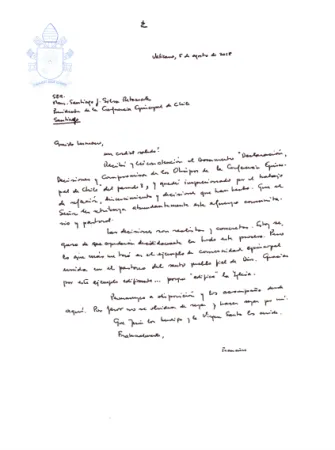 Vaticano, 5 de agosto de 2018
Mons. Santiago J. Silva Retamales
Presidente de la Conferencia Episcopal de Chile
Santiago
Querido hermano,
un cordial saludo!
Recibí y leí con atención el documento "Declaración,
Decisiones y Compromisos de los Obispos de la Conferencia Episco-
pal de Chile" del pasado 3, y quedé impresionado por el trabajo
de reflexión, discernimiento y decisiones que han hecho. Que el
Señor les retribuya abundantemente este esfuerzo comunita-
rio y pastoral.
Las decisiones son realistas y concretas. Estoy se-
guro de que ayudarán decididamente en todo este proceso. Pero
lo que más me tocó es el ejemplo de comunidad episcopal
unida en el pastoreo del santo pueblo fiel de Dios. Gracias
por este ejemplo edificante... porque "edifica" la Iglesia.
Permanezco a disposición y los acompaño desde
aquí. Por favor no se olviden de rezar y hacer rezar por mí.
Que Jesús los bendiga y la Virgen Santa los cuide.
Fraternalmente,
Francisco